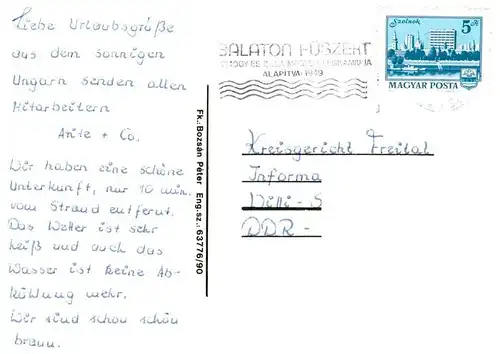 Liebe Urlaubsgrüße
aus dem sonnigen
Ungarn senden allen
Mitarbeitern
+ Co.
Wir haben eine schöne
Unterkunft, nur 10 min.
vom Strand entfernt.
Das Wetter ist sehr
heiß und auch das
Wasser ist keine Ab-
kühlung mehr.
Wir sind schon schön
braun.
Fk.: Bozsán Péter Eng.sz.: 63776/90
BALATON FŰSZÉRT
ALAPÍTVA: 1949
Szolnok
5 Ft
MAGYAR POSTA
Kreisgericht Freital
Informa
DDR-